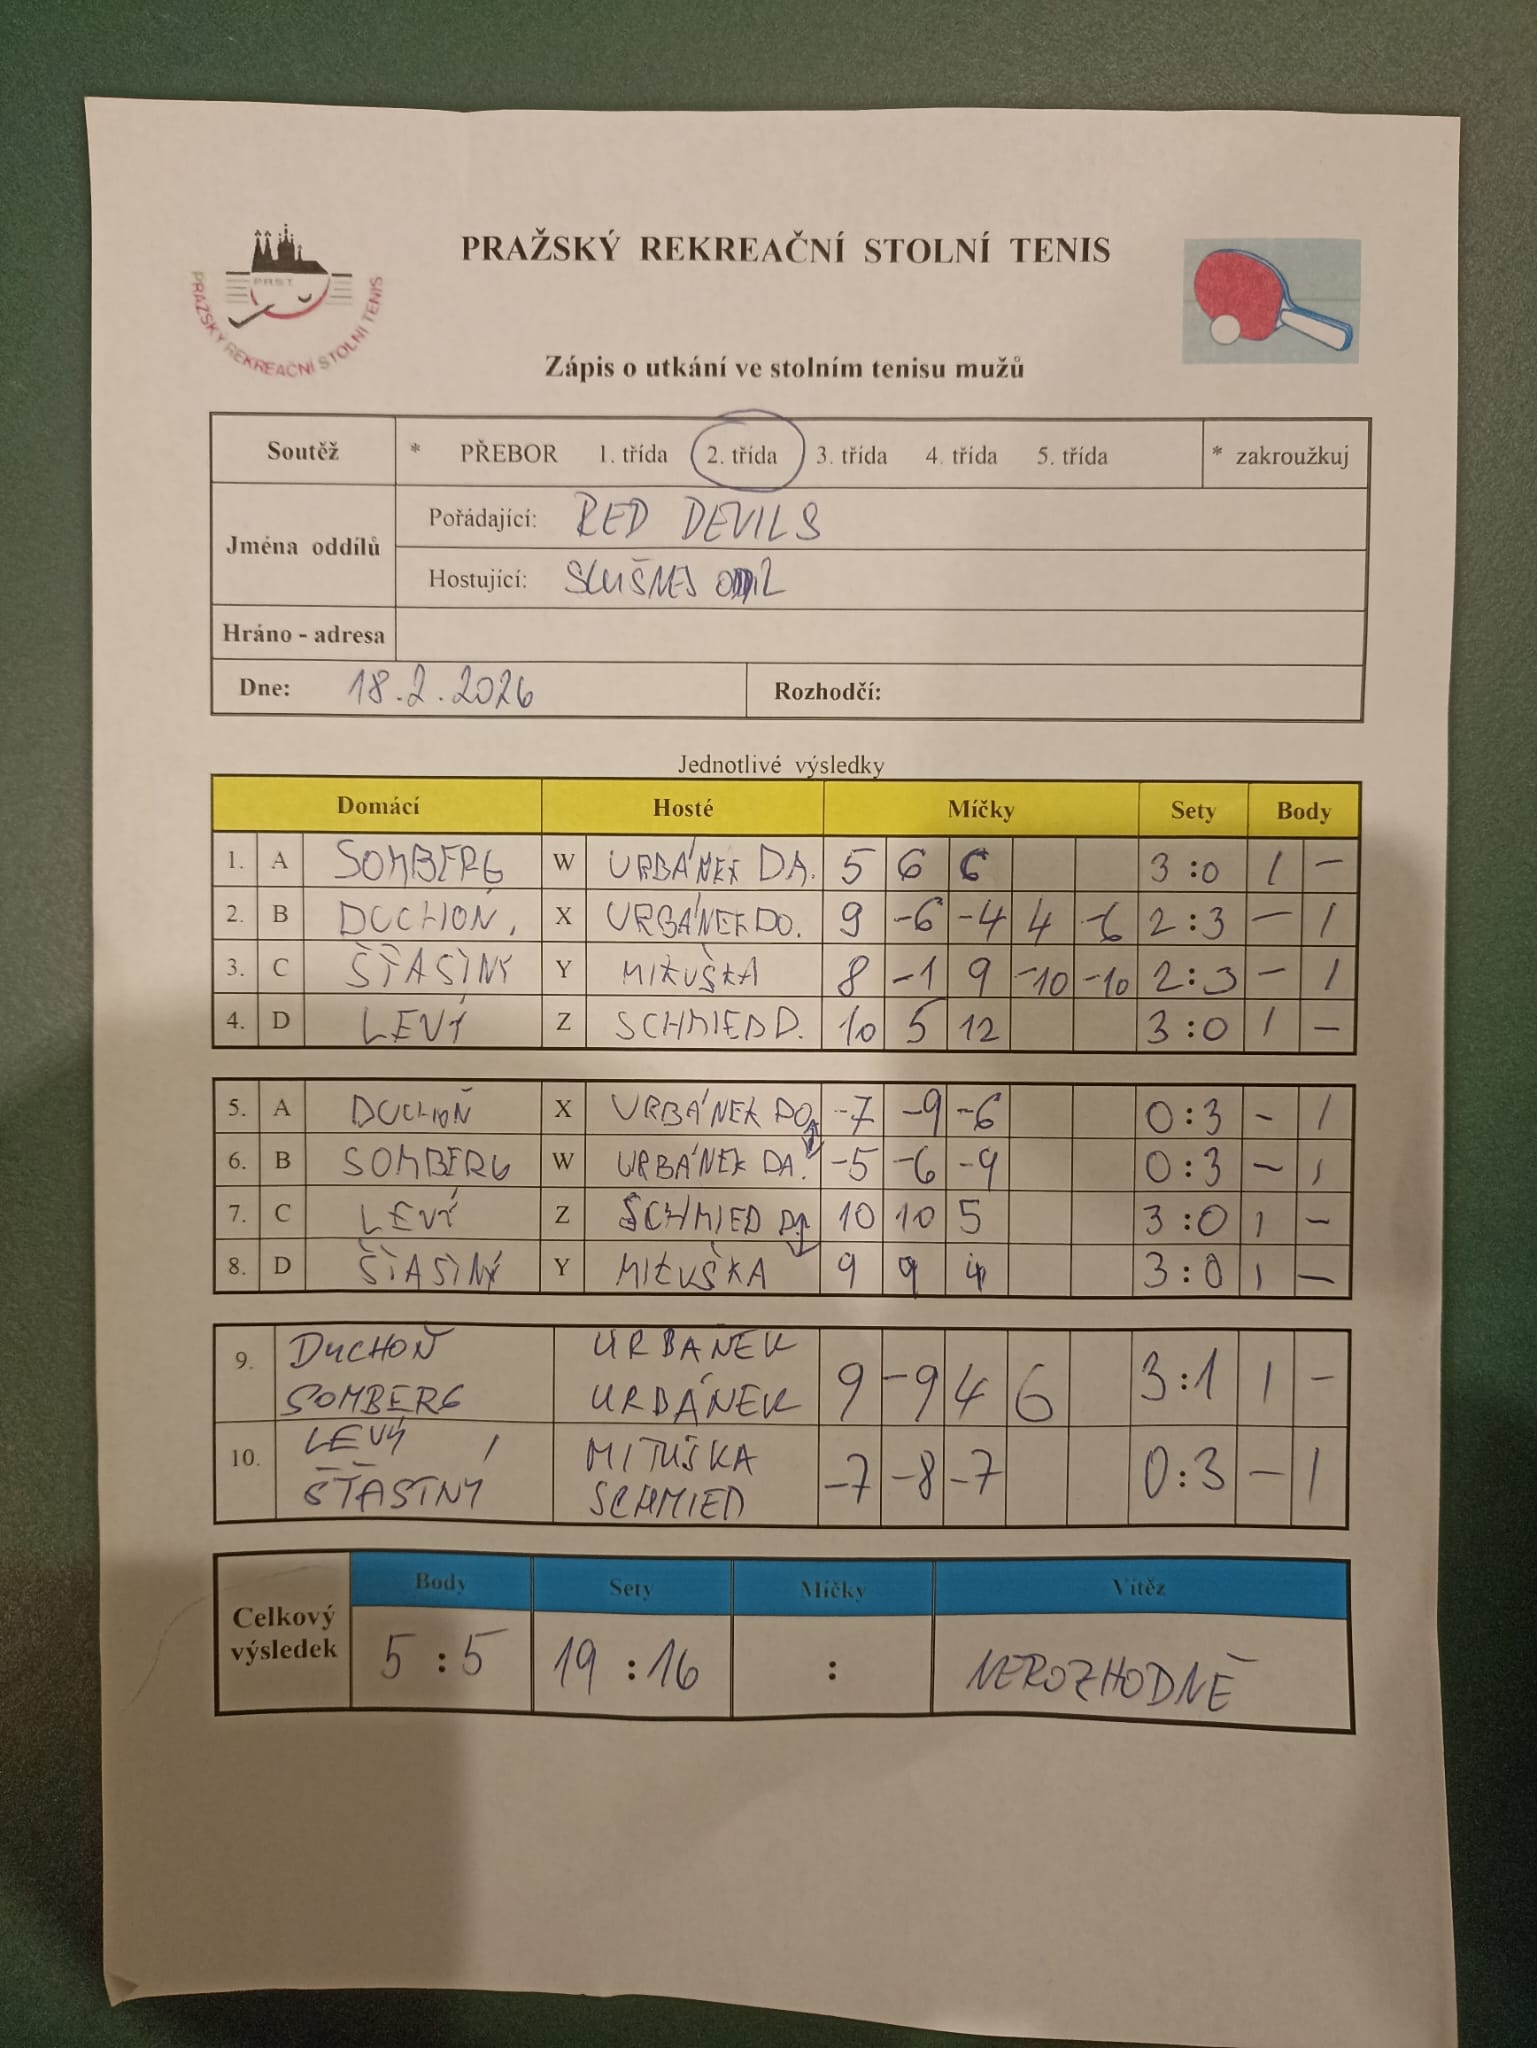 PRAŽSKÝ REKREAČNÍ STOLNÍ TENIS
PRST
PRAŽSKÝ REKREAČNÍ STOLNÍ TENIS
Zápis o utkání ve stolním tenisu mužů
Soutěž * PŘEBOR 1. třída 2. třída 3. třída 4. třída 5. třída * zakroužkuj
Jména oddílů
Pořádající: RED DEVILS
Hostující: SLUŠNEJ
Hráno - adresa
Dne: 18.2.2026 Rozhodčí:
Jednotlivé výsledky
Domácí Hosté Míčky Sety Body
1. A SOMBERG W URBÁNEK DA. 5 6 6 3:0 1 –
2. B DUCHOŇ X URBÁNEK DO. 9 -6 -4 4 -6 2:3 – 1
3. C ŠŤASTNÝ Y MITUŠKA 8 -1 9 -10 -10 2:3 – 1
4. D LEVÝ Z SCHMIED D. 10 5 12 3:0 1 –
5. A DUCHOŇ X URBÁNEK DO. -7 -9 -6 0:3 – 1
6. B SOMBERG W URBÁNEK DA. -5 -6 -9 0:3 – 1
7. C LEVÝ Z SCHMIED D. 10 10 5 3:0 1 –
8. D ŠŤASTNÝ Y MITUŠKA 9 9 4 3:0 1 –
9. DUCHOŇ URBÁNEK
SOMBERG URBÁNEK 9 -9 4 6 3:1 1 –
10. LEVÝ MITUŠKA
ŠŤASTNÝ SCHMIED -7 -8 -7 0:3 – 1
Celkový výsledek
Body Sety Míčky Vítěz
5 : 5 19 : 16 : NEROZHODNĚ